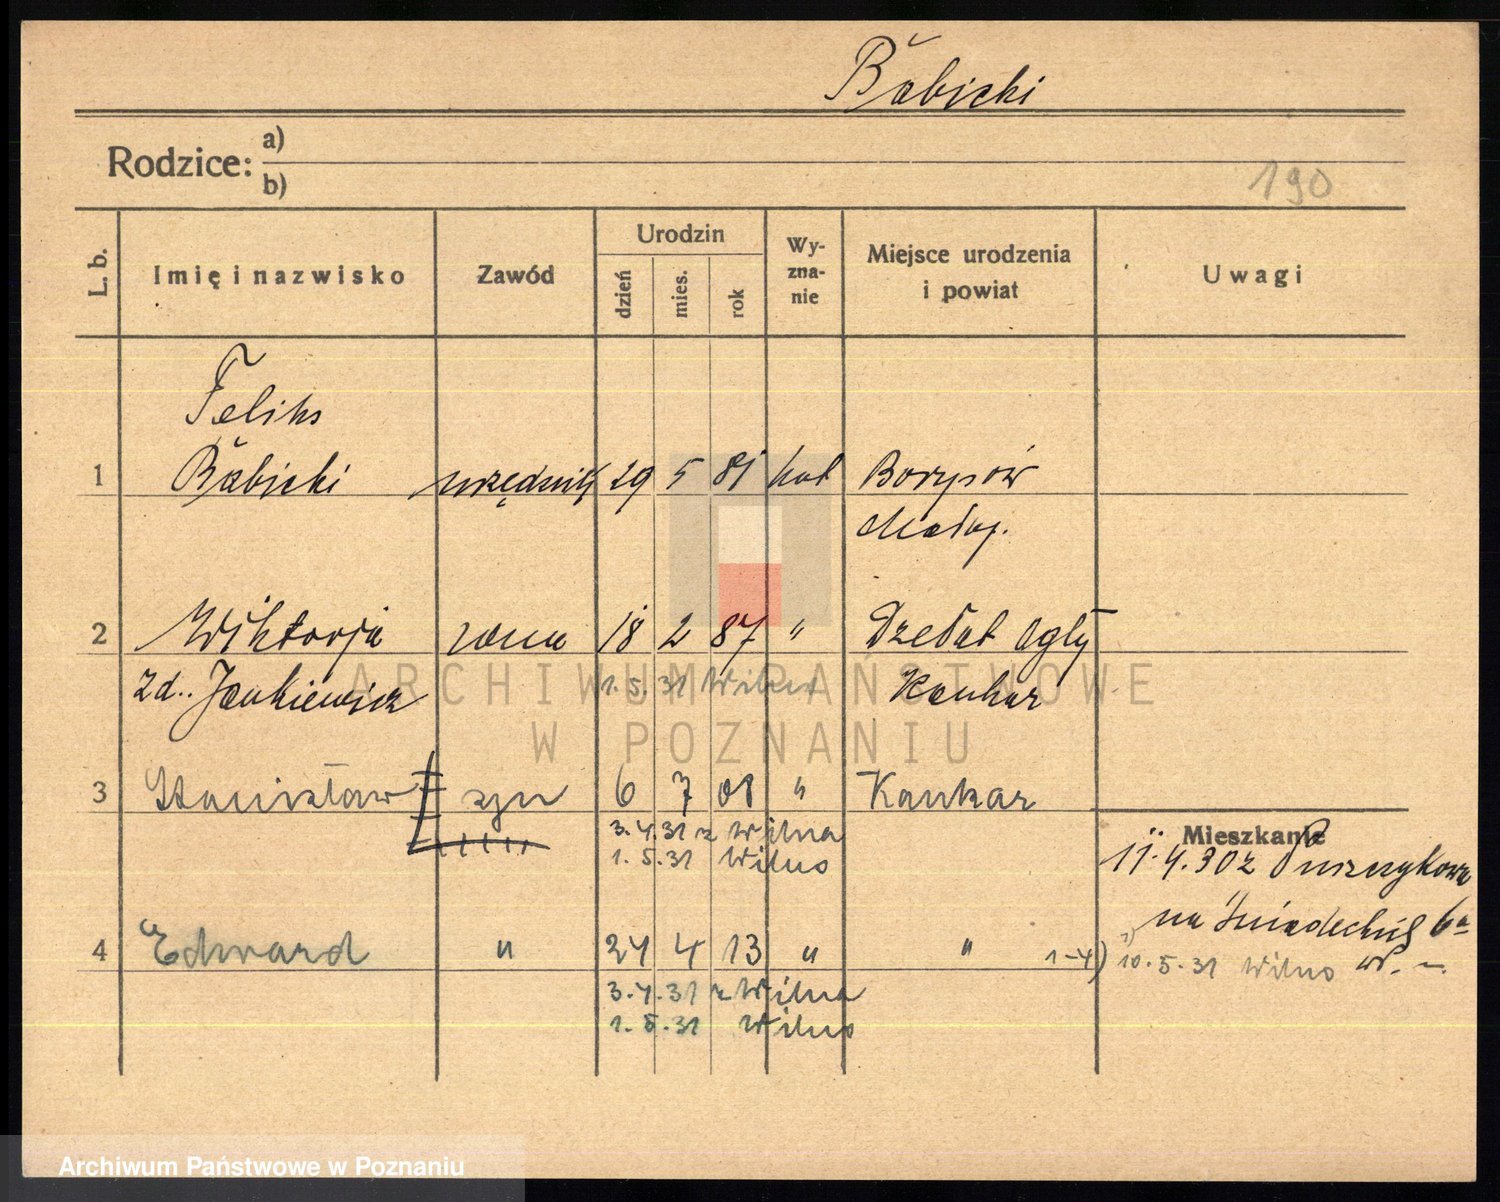 Babicki
Rodzice: a)
b)
190
L. b.
Imię i nazwisko
Zawód
Urodzin
dzień
mies.
rok
Wy-
zna-
nie
Miejsce urodzenia
i powiat
Uwagi
Feliks
1 Babicki urzędnik 29 5 81 kat Borysów
2 Wiktorja żona 18 2 87 "
zd.. Jankiewicz 1. 5. 31 Wilno Kaukaz
3 Stanisław syn 6 7 08 " Kaukaz
3. 4. 31 z Wilna
1. 5. 31 Wilno
Mieszkanie
11. 4. 30 z Puszczykowa
na Śniadeckich 6a
4 Edward " 24 4 13 " " 1-4) 10. 5. 31 Wilno
3. 4. 31 z Wilna
1. 5. 31 Wilno
ARCHIWUM PAŃSTWOWE
W POZNANIU
Archiwum Państwowe w Poznaniu